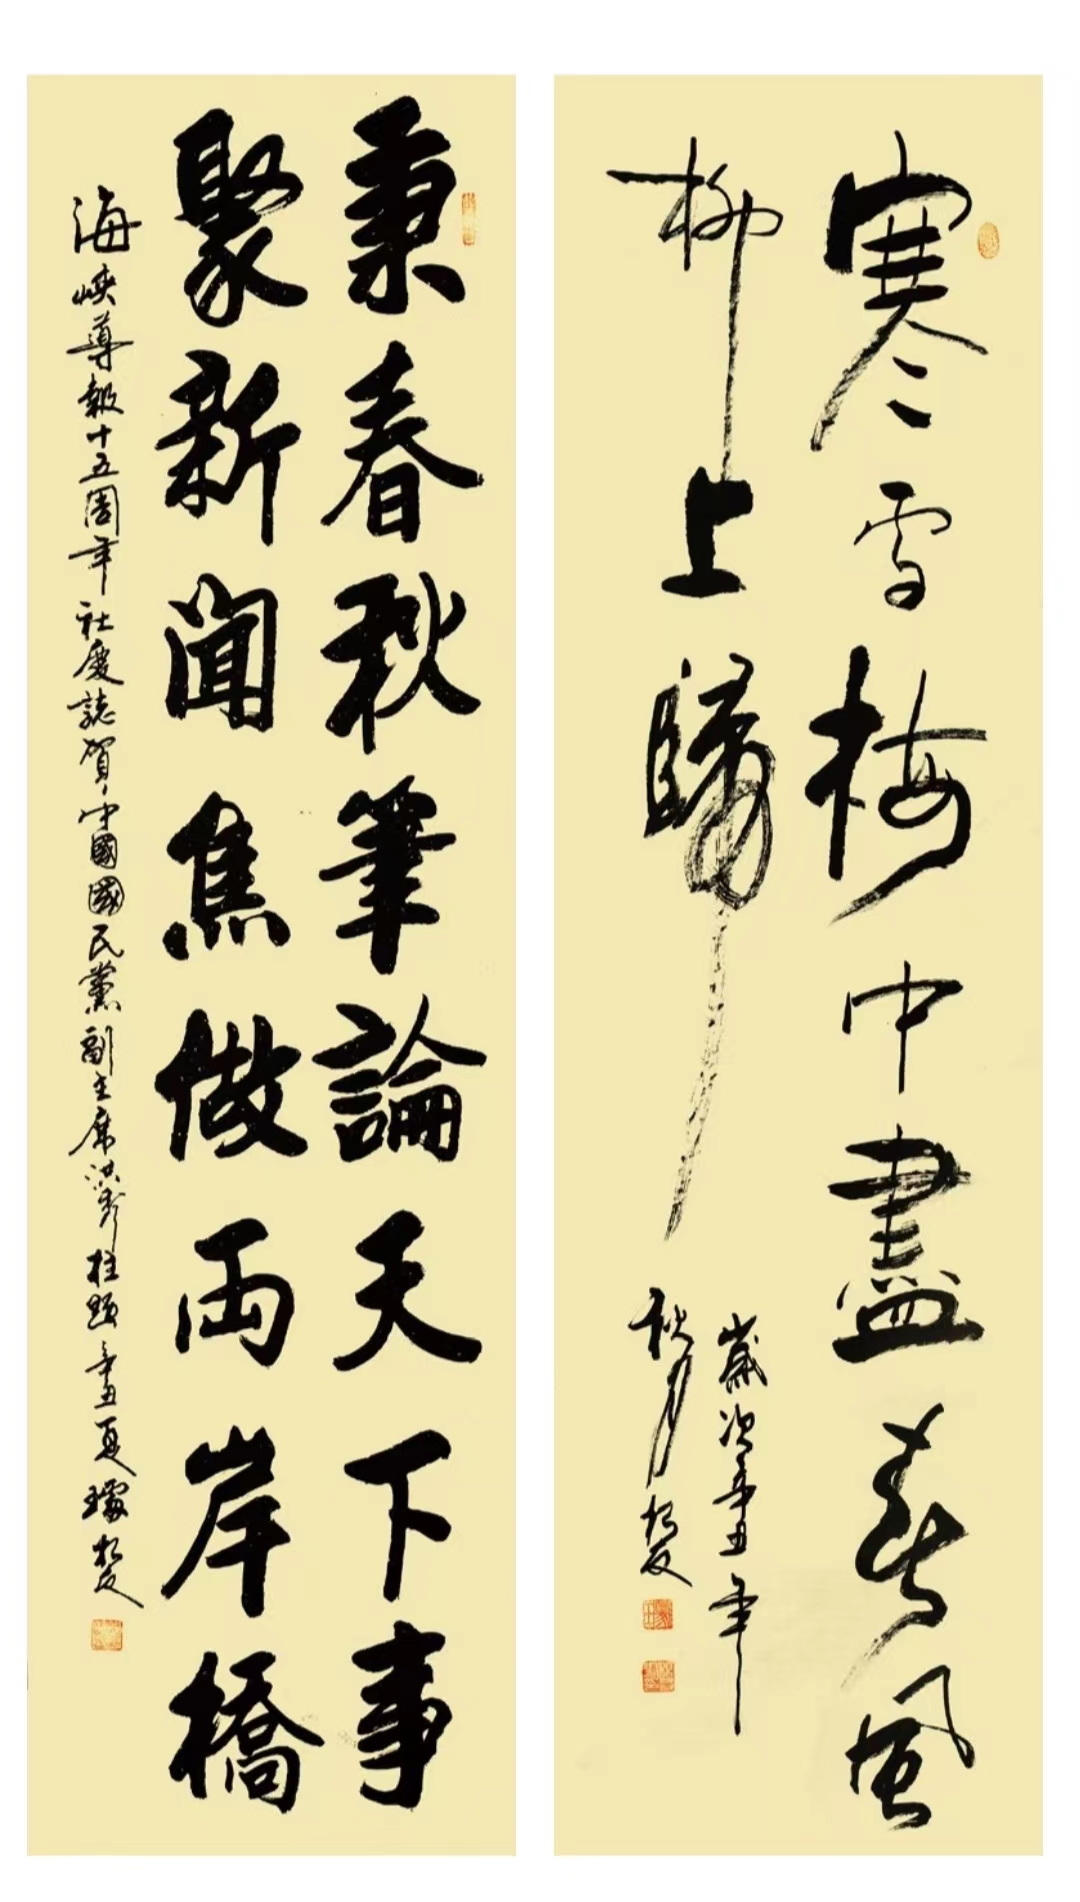 寒雪梅中盡春風
柳上歸
歲次辛丑年
秋月
秉春秋筆論天下事
聚新聞焦做兩岸橋
海峽導報十五周年社慶誌賀中國國民黨副主席洪秀柱題辛丑夏